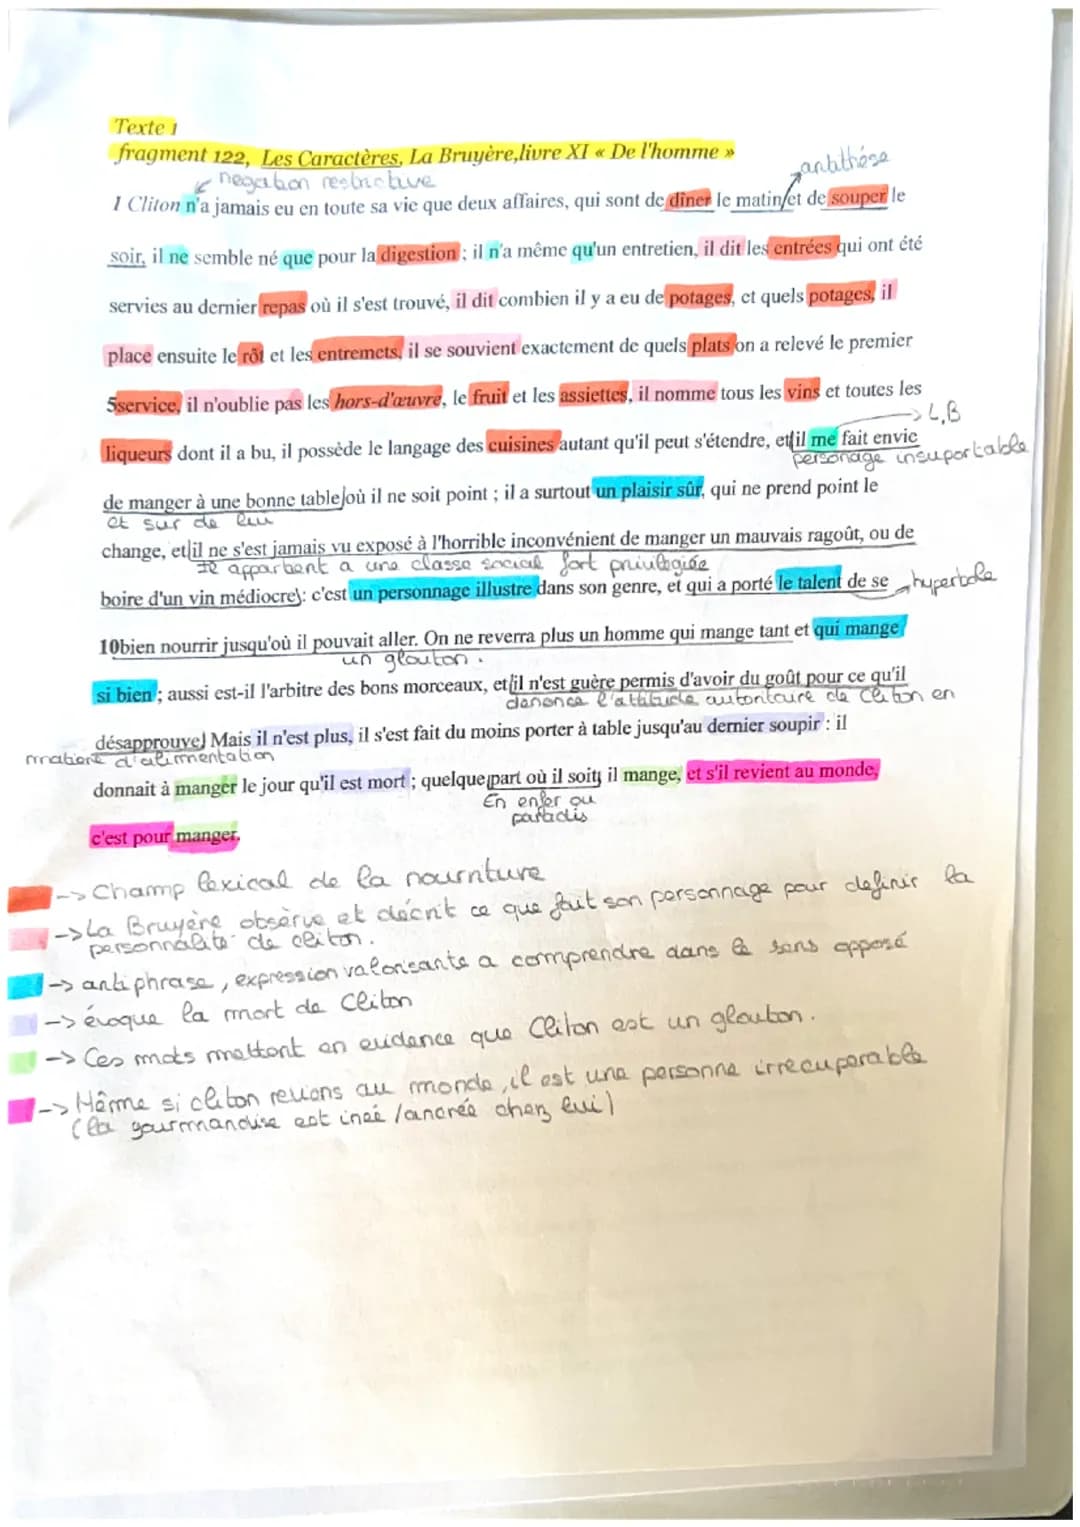 Texte 1
fragment 122, Les Caractères, La Bruyère,livre XI « De l'homme »
antithèse
negation restrictive
1 Cliton n'a jamais eu en toute sa vie que deux affaires, qui sont de dîner le matin et de souper le
soir, il ne semble né que pour la digestion ; il n'a même qu'un entretien, il dit les entrées qui ont été
servies au dernier repas où il s'est trouvé, il dit combien il y a eu de potages, et quels potages, il
place ensuite le rôt et les entremets, il se souvient exactement de quels plats on a relevé le premier
5service, il n'oublie pas les hors-d'œuvre, le fruit et les assiettes, il nomme tous les vins et toutes les
-> L,B
liqueurs dont il a bu, il possède le langage des cuisines autant qu'il peut s'étendre, et il me fait envie
personage insuportable
de manger à une bonne table où il ne soit point ; il a surtout un plaisir sûr, qui ne prend point le
et sur de lui
change, et il ne s'est jamais vu exposé à l'horrible inconvénient de manger un mauvais ragoût, ou de
Il appartient a une classe social fort privilegiée
boire d'un vin médiocre : c'est un personnage illustre dans son genre, et qui a porté le talent de se
hyperbole
10bien nourrir jusqu'où il pouvait aller. On ne reverra plus un homme qui mange tant et qui mange
un glouton.
si bien ; aussi est-il l'arbitre des bons morceaux, et il n'est guère permis d'avoir du goût pour ce qu'il
denonce l'attitude autoritaire de Cliton en
désapprouve. Mais il n'est plus, il s'est fait du moins porter à table jusqu'au dernier soupir : il
matiere d'alimentation
donnait à manger le jour qu'il est mort ; quelque part où il soit, il mange, et s'il revient au monde,
En enfer ou
paradis
c'est pour manger.
-> Champ lexical de la nourriture
-> La Bruyère observe et décrit ce que fait son personnage pour definir la
personnalité de cliton.
-> antiphrase, expression valorisante a comprendre dans le sens opposé
-> évoque la mort de Cliton
-> Ces mots mettent en evidence que Cliton est un glouton.
-> Même si cliton reviens au monde, il est une personne irrecuperable
(la gourmandise est inée / ancrée chez lui)